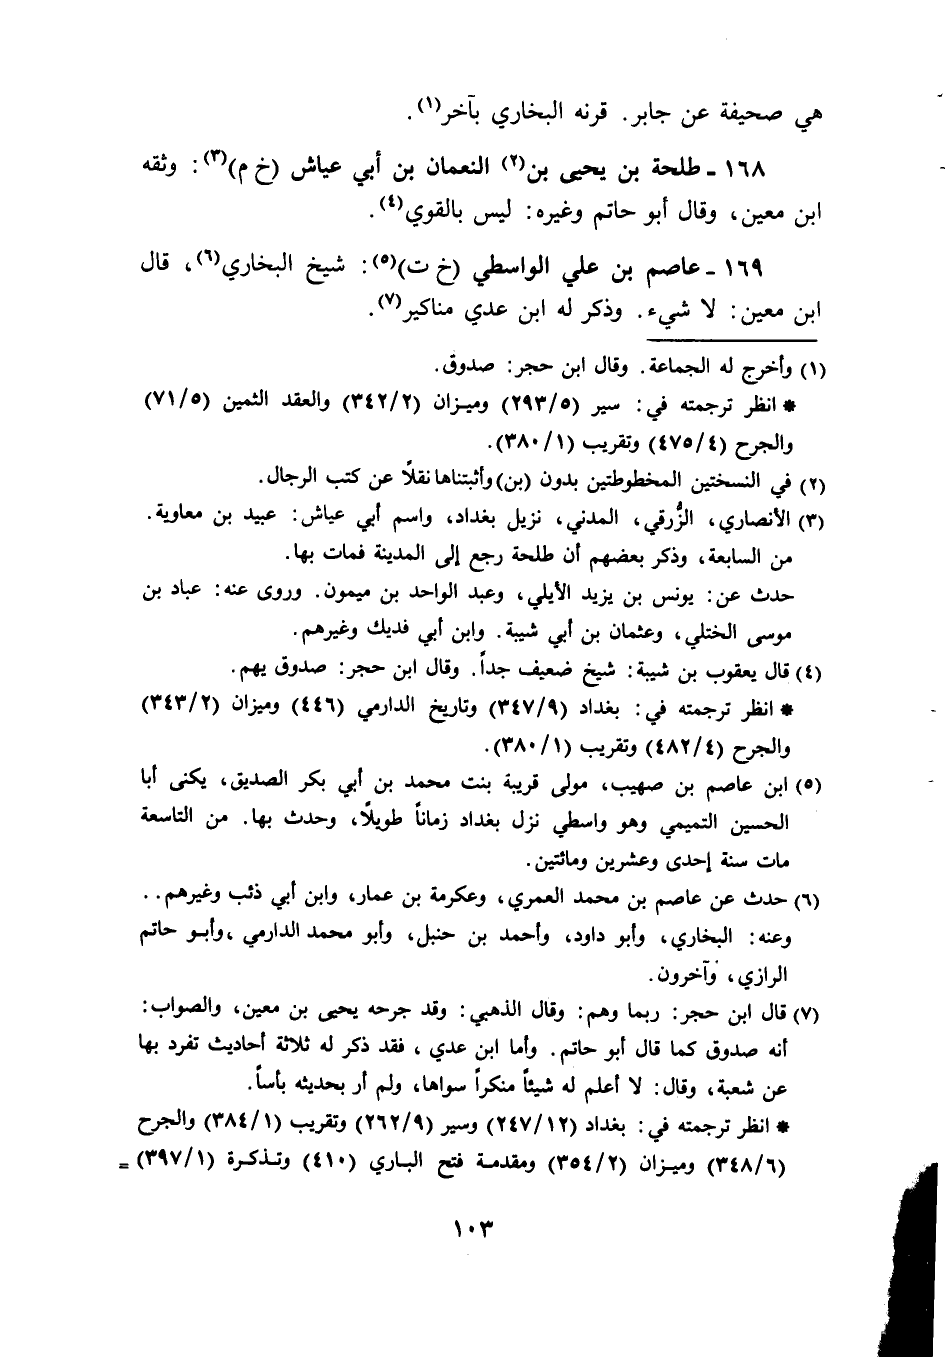 هي صحيفة عن جابر. قرنه البخاري بآخر(١).
١٦٨ ـ طلحة بن يحيى بن(٢) النعمان بن أبي عياش (خ م)(٣): وثقه
ابن معين، وقال أبو حاتم وغيره: ليس بالقوي(٤).
١٦٩ ـ عاصم بن علي الواسطي (خ ت)(٥): شيخ البخاري(٦)، قال
ابن معين: لا شيء. وذكر له ابن عدي مناكير(٧).
(١) وأخرج له الجماعة. وقال ابن حجر: صدوق.
* انظر ترجمته في: سير (٢٩٣/٥) وميزان (٣٤٢/٢) والعقد الثمين (٧١/٥)
والجرح (٤٧٥/٤) وتقريب (٣٨٠/١).
(٢) في النسختين المخطوطتين بدون (بن) وأثبتناها نقلاً عن كتب الرجال.
(٣) الأنصاري، الزُّرقي، المدني، نزيل بغداد، واسم أبي عياش: عبيد بن معاوية.
من السابعة، وذكر بعضهم أن طلحة رجع إلى المدينة فمات بها.
حدث عن: يونس بن يزيد الأيلي، وعبد الواحد بن ميمون. وروى عنه: عباد بن
موسى الختلي، وعثمان بن أبي شيبة. وابن أبي فديك وغيرهم.
(٤) قال يعقوب بن شيبة: شيخ ضعيف جداً. وقال ابن حجر: صدوق يهم.
* انظر ترجمته في: بغداد (٣٤٧/٩) وتاريخ الدارمي (٤٤٦) وميزان (٣٤٣/٢)
والجرح (٤٨٢/٤) وتقريب (٣٨٠/١).
(٥) ابن عاصم بن صهيب، مولى قريبة بنت محمد بن أبي بكر الصديق، يكنى أبا
الحسين التميمي وهو واسطي نزل بغداد زماناً طويلًا، وحدث بها. من التاسعة
مات سنة إحدى وعشرين ومائتين.
(٦) حدث عن عاصم بن محمد العمري، وعكرمة بن عمار، وابن أبي ذئب وغيرهم..
وعنه: البخاري، وأبو داود، وأحمد بن حنبل، وأبو محمد الدارمي ،وأبو حاتم
الرازي، وآخرون.
(٧) قال ابن حجر: ربما وهم: وقال الذهبي: وقد جرحه يحيى بن معين، والصواب:
أنه صدوق كما قال أبو حاتم. وأما ابن عدي ، فقد ذكر له ثلاثة أحاديث تفرد بها
عن شعبة، وقال: لا أعلم له شيئاً منكراً سواها، ولم أر بحديثه بأساً.
* انظر ترجمته في: بغداد (٢٤٧/١٢) وسير (٢٦٢/٩) وتقريب (٣٨٤/١) والجرح
(٣٤٨/٦) وميزان (٣٥٤/٢) ومقدمة فتح الباري (٤١٠) وتذكرة (٣٩٧/١) =
١٠٣